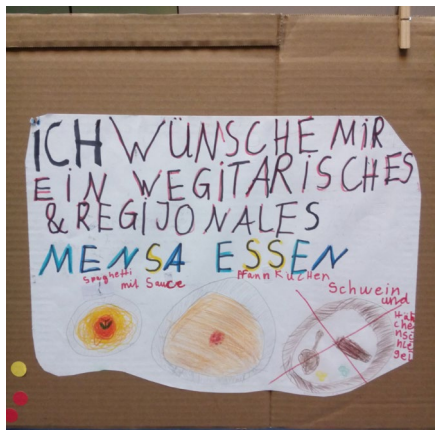 ICH WÜNSCHE MIR
EIN WEGITARISCHES
& REGIJONALES
MENSA ESSEN
Spaghetti
mit Sauce
Pfannkuchen
Schwein
und